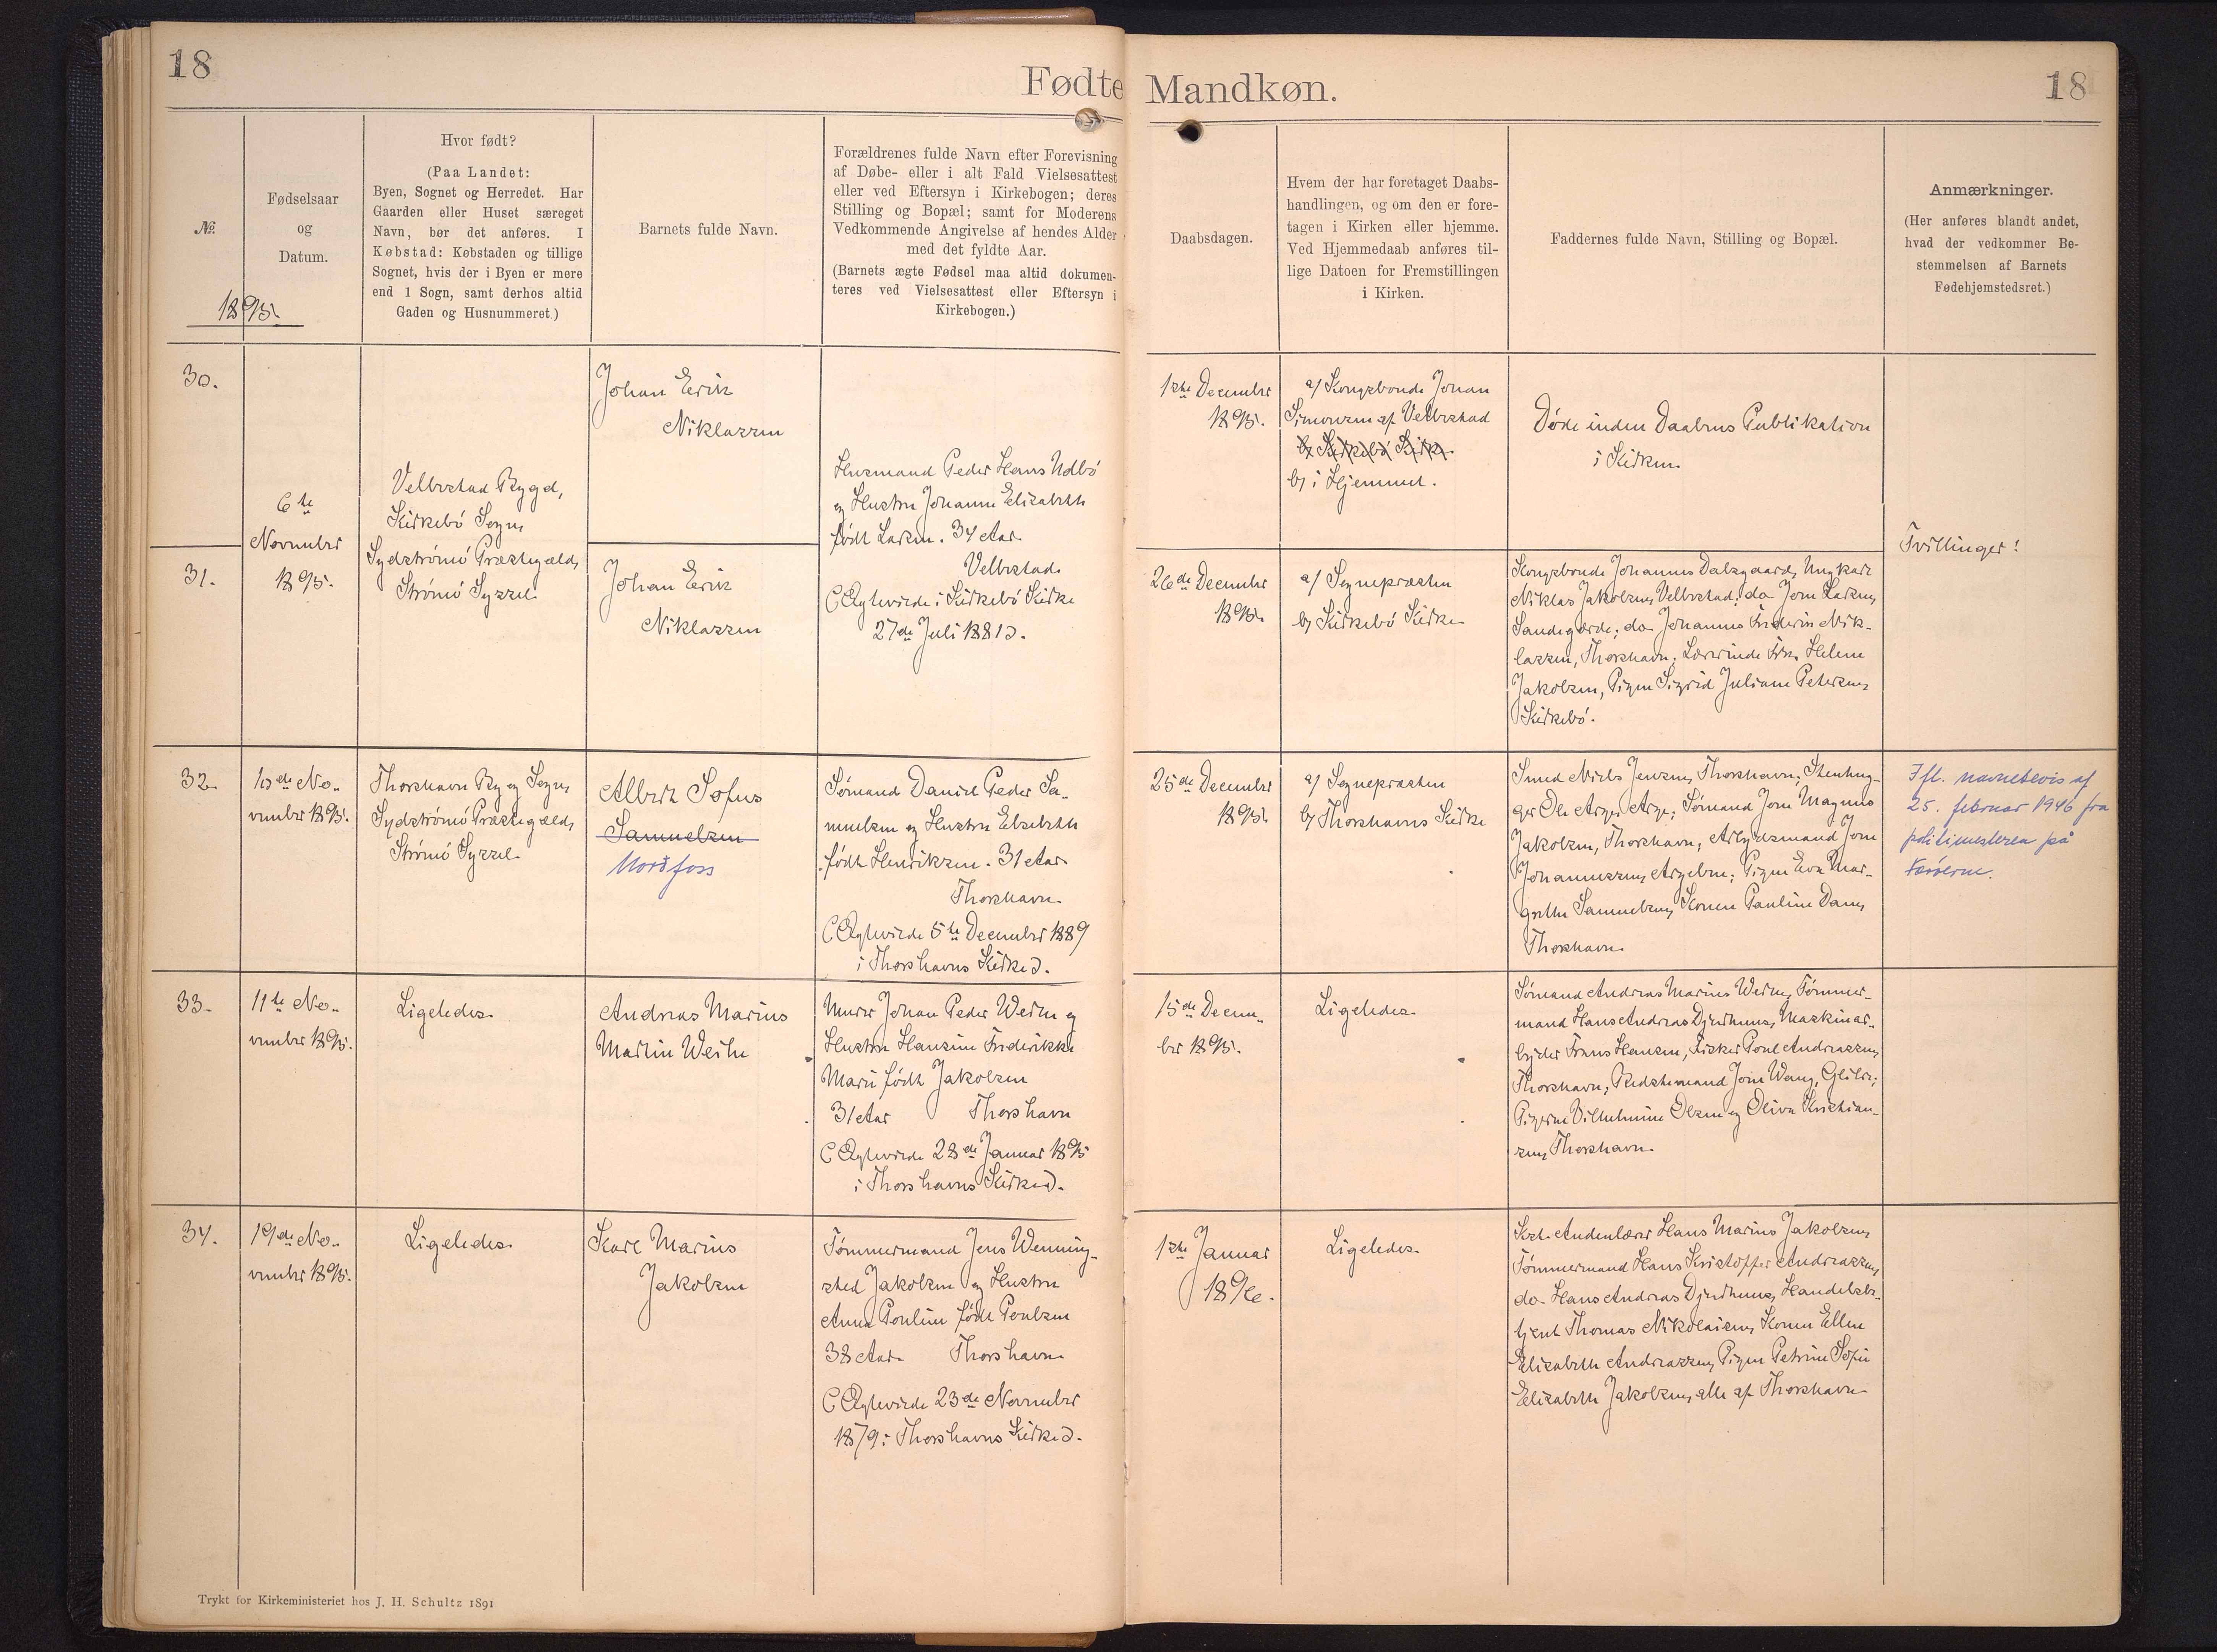 18
Fødte
Mandkøn.
18
№.
Fødselsaar
og
Datum.
1895.
Hvor født?
(Paa Landet:
Byen, Sognet og Herredet. Har
Gaarden eller Huset særeget
Navn, bør det anføres. I
Købstad: Købstaden og tillige
Sognet, hvis der i Byen er mere
end 1 Sogn, samt derhos altid
Gaden og Husnummeret.)
Barnets fulde Navn.
Forældrenes fulde Navn efter Forevisning
af Døbe- eller i alt Fald Vielsesattest
eller ved Eftersyn i Kirkebogen; deres
Stilling og Bopæl; samt for Moderens
Vedkommende Angivelse af hendes Alder
med det fyldte Aar.
(Barnets ægte Fødsel maa altid dokumen-
teres ved Vielsesattest eller Eftersyn i
Kirkebogen.)
Daabsdagen.
Hvem der har foretaget Daabs-
handlingen, og om den er fore-
tagen i Kirken eller hjemme.
Ved Hjemmedaab anføres til-
lige Datoen for Fremstillingen
i Kirken.
Faddernes fulde Navn, Stilling og Bopæl.
Anmærkninger.
(Her anføres blandt andet,
hvad der vedkommer Be-
stemmelsen af Barnets
Fødehjemstedsret.)
30.
31.
6te
November
1895.
Velbestad Bygd,
Kirkebö Sogn,
Sydströmö Præstegæld,
Strömö Syssel.
Johan Erik
Niklassen
Johan Erik
Niklassen
Husmand Peder Hans Udbö
og Hustru Johanne Elisabeth
född Larsen. 34 Aar.
Velbestad.
(Ægteviede i Kirkebö Kirke
27de Juli 1881).
1ste December
1895.
a) Kongsbonde Johan
Simonsen af Velbestad
b) Kirkebö Kirke
b) i Hjemmet.
Döde inden Daabens Publikation
i Kirken.
26de December
1895.
a) Sognepræsten
b) Kirkebö Kirke.
Kongsbonde Johannes Dalsgaard, Ungkarl
Niklas Jakobsen, Velbestad; do Joen Larsen,
Sandegærde; do. Johannes Frederik Nik-
lassen, Thorshavn; Lærerinde Frk. Helene
Jakobsen, Pigen Sigrid Juliane Petersen,
Kirkebö.
Tvillinger!
32.
10de No-
vember 1895.
Thorshavn By og Sogn,
Sydströmö Præstegæld,
Strömö Syssel.
Albert Sofus
Samuelsen
Nordfoss
Sömand Daniel Peder Sa-
muelsen og Hustru Elsebeth
född Henriksen. 31 Aar.
Thorshavn.
(Ægteviede 5te December 1889
i Thorshavns Kirke).
25de December
1895.
a) Sognepræsten
b) Thorshavns Kirke
Smed Niels Jensen, Thorshavn; Stenhug-
ger Ole Arge, Arge; Sömand Joen Magnus
Jakobsen, Thorshavn, Arbejdsmand Joen
Johannessen, Argebrn; Pigen Eva Mar-
grethe Samuelsen, Konen Pauline Dam,
Thorshavn.
Ifl. navnebevis af
25. februar 1946 fra
politimesteren på
Færöerne.
33.
11te No-
vember 1895.
Ligeledes.
Andreas Marius
Martin Weihe
Murer Johan Peder Weihe og
Hustru Hansine Frederikke
Marie född Jakobsen
31 Aar Thorshavn
(Ægteviede 28de Januar 1895
i Thorshavns Kirke).
15de Decem-
ber 1895.
Ligeledes.
Sömand Andreas Marius Weihe, Tömmer-
mand Hans Andreas Djurhuus, Maskinar-
bejder Frans Hansen, Fisker Poul Andreassen,
Thorshavn; Bedstemand Joen Wang, Glibre;
Pigerne Vilhelmine Olsen og Oliva Kristian-
sen, Thorshavn.
34.
19de No-
vember 1895.
Ligeledes.
Karl Marius
Jakobsen
Tömmermand Jens Wenning-
sted Jakobsen og Hustru
Anna Pouline född Poulsen
38 Aar. Thorshavn.
(Ægteviede 23de November
1879 i Thorshavns Kirke).
1ste Januar
1896.
Ligeledes.
Kst. Andenlærer Hans Marius Jakobsen,
Tömmermand Hans Kristoffer Andreassen,
do. Hans Andreas Djurhuus, Handelsbe-
tjent Thomas Nikolaisen, Konen Ellen
Elisabeth Andreassen, Pigen Petrine Sofie
Elisabeth Jakobsen, alle af Thorshavn.
Trykt for Kirkeministeriet hos J. H. Schultz 1891